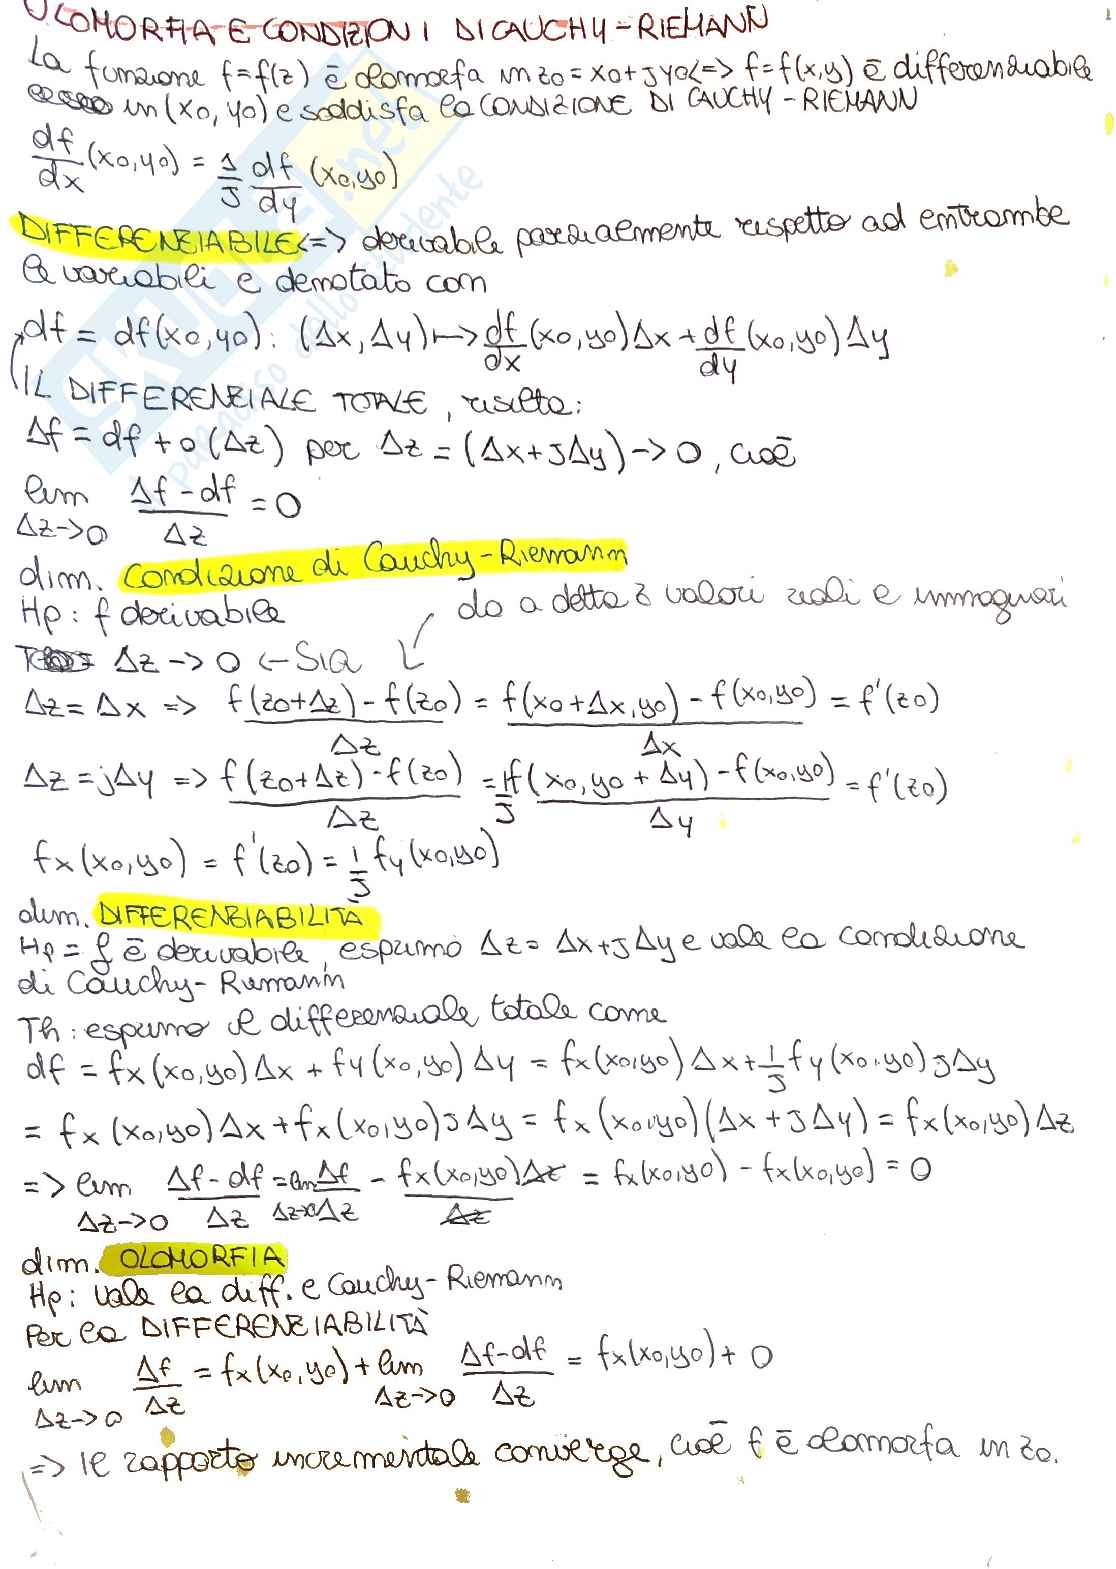 OLOMORFIA E CONDIZIONI DI CAUCHY-RIEMANN
La funzione f=f(z) è olomorfa in z0=x0+jy0<=> f=f(x,y) è differenziabile
in (x0, y0) e soddisfa la CONDIZIONE DI CAUCHY-RIEMANN
df/dx (x0,y0) = 1/j df/dy (x0,y0)
DIFFERENZIABILE<=> derivabile parzialmente rispetto ad entrambe
le variabili e denotato con
df = df(x0,y0): (Δx,Δy)↦df/dx (x0,y0)Δx+df/dy (x0,y0)Δy
IL DIFFERENZIALE TOTALE, risulta:
Δf = df + o(Δz) per Δz = (Δx+jΔy)->0, cioè
lim Δz->0 (Δf-df)/Δz = 0
dim. Condizione di Cauchy-Riemann
Hp: f derivabile
do a delta z valori reali e immaginari
Δz -> 0 <- Sia
Δz = Δx => (f(z0+Δz)-f(z0))/Δz = (f(x0+Δx,y0)-f(x0,y0))/Δx = f'(z0)
Δz = jΔy => (f(z0+Δz)-f(z0))/Δz = 1/j (f(x0,y0+Δy)-f(x0,y0))/Δy = f'(z0)
fx(x0,y0) = f'(z0) = 1/j fy(x0,y0)
dim. DIFFERENZIABILITÀ
Hp= f è derivabile, esprimo Δz= Δx+jΔy e vale la condizione
di Cauchy-Riemann
Th: esprimo il differenziale totale come
df = fx(x0,y0)Δx + fy(x0,y0)Δy = fx(x0,y0)Δx+1/j fy(x0,y0)jΔy
= fx(x0,y0)Δx+fx(x0,y0)jΔy = fx(x0,y0)(Δx+jΔy) = fx(x0,y0)Δz
=> lim Δz->0 (Δf-df)/Δz = lim Δz->0 Δf/Δz - fx(x0,y0)Δz/Δz = fx(x0,y0) - fx(x0,y0) = 0
dim. OLOMORFIA
Hp: vale la diff. e Cauchy-Riemann
Per la DIFFERENZIABILITÀ
lim Δz->0 Δf/Δz = fx(x0,y0)+lim Δz->0 (Δf-df)/Δz = fx(x0,y0)+0
=> il rapporto incrementale converge, cioè f è olomorfa in z0.